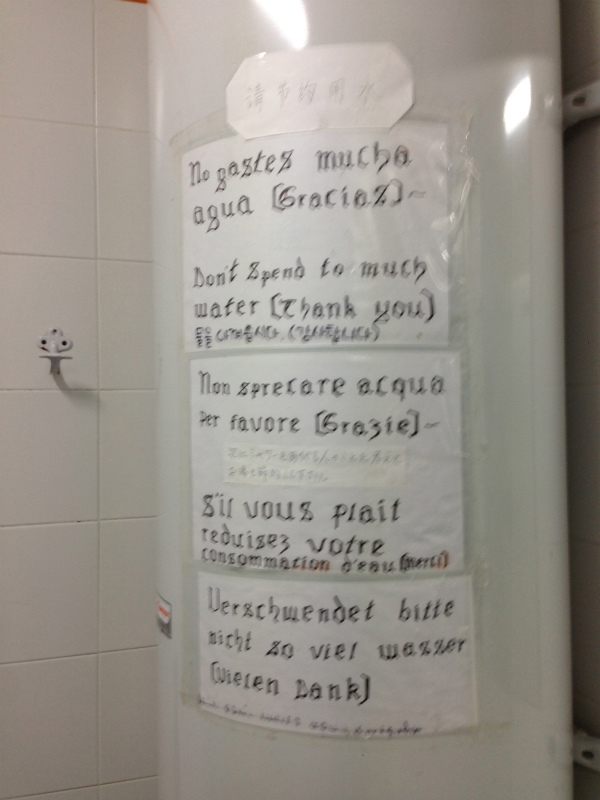 请节约用水
No gastes mucha
agua (Gracias)~
Don't Spend to much
water (Thank you)
물을 아껴씁시다. (감사합니다)
Non sprecare acqua
Per favore (Grazie)~
S'il vous plait
reduisez votre
consommation d'eau (merci)
Verschwendet bitte
nicht so viel wasser
(Vielen Dank)